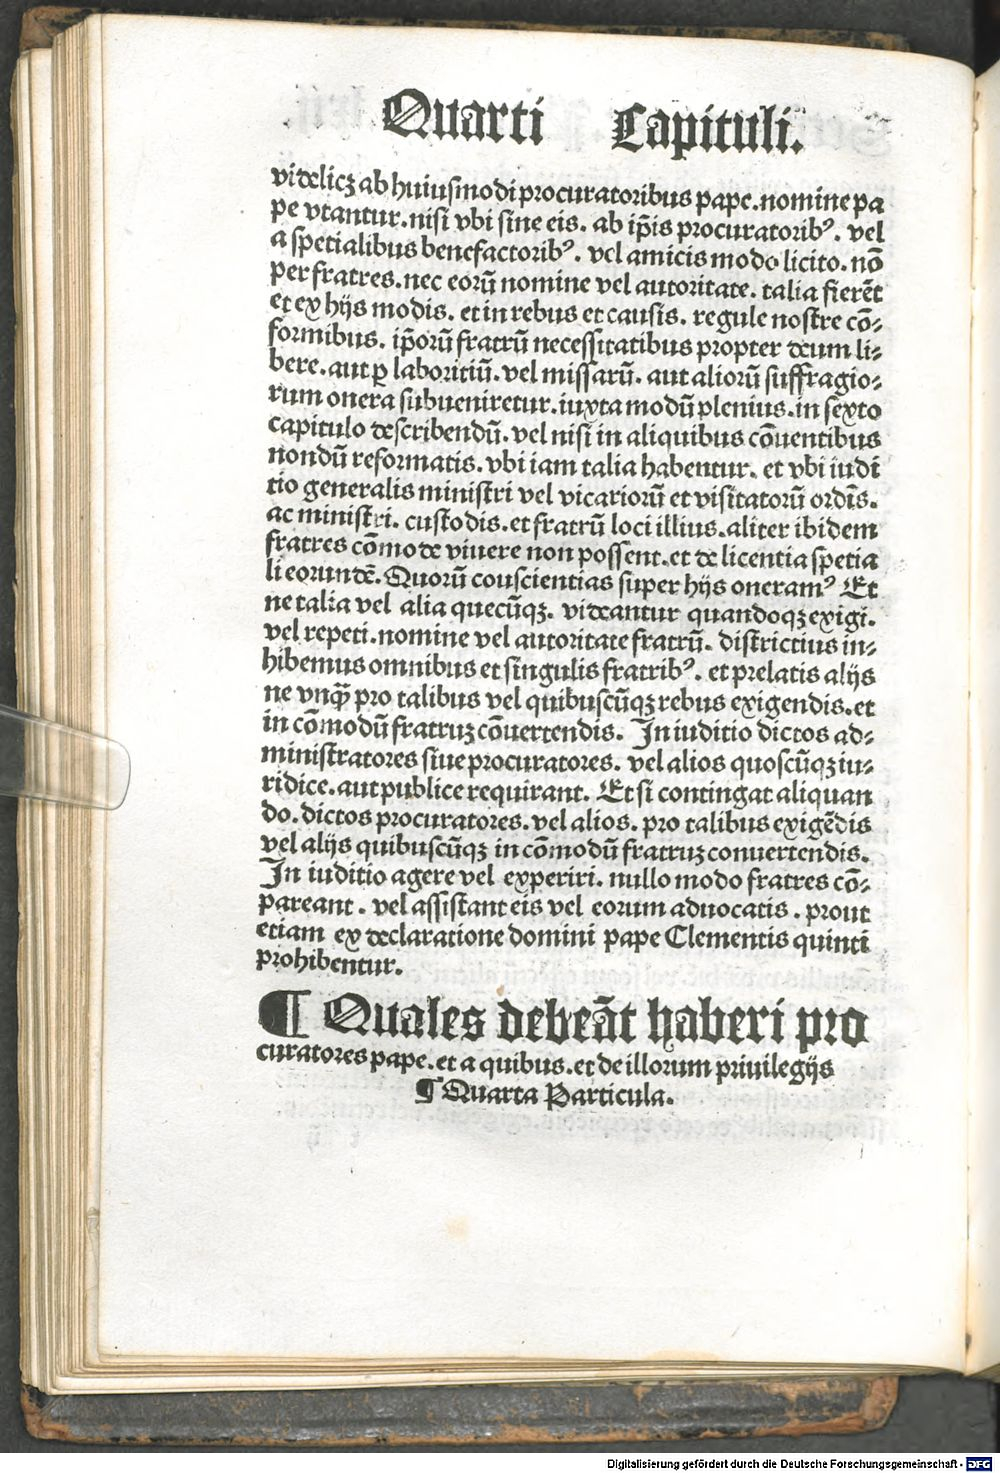 Quarti Capituli.
videlicꝫ ab huiusmodi procuratoribus pape. nomine pa
pe vtantur. nisi vbi sine eis. ab ip̄is procuratorib⁹. vel
a spetialibus benefactorib⁹. vel amicis modo licito. nō
per fratres. nec eorū nomine vel autoritate. talia fierēt
et ex hijs modis. et in rebus et causis. regule nostre cō⸗
formibus. ip̄orū fratrū necessitatibus propter deum li⸗
bere. aut ꝑ laboritiū. vel missarū. aut aliorū suffragio⸗
rum onera subueniretur. iuxta modū plenius. in sexto
capitulo describendū. vel nisi in aliquibus cōuentibus
nondū reformatis. vbi iam talia habentur. et vbi iudi
tio generalis ministri vel vicariorū et visitatorū ordīs.
ac ministri. custodis. et fratrū loci illius. aliter ibidem
fratres cōmode viuere non possent. et de licentia spetia
li eorundē. Quorū couscientias super hijs oneram⁹ Et
ne talia vel alia quecūqꝫ. videantur quandoqꝫ exigi.
vel repeti. nomine vel autoritate fratrū. districtius in⸗
hibemus omnibus et singulis fratrib⁹. et prelatis alijs
ne vnq̄ pro talibus vel quibuscūqꝫ rebus exigendis. et
in cōmodū fratruꝫ cōuertendis. In iuditio dictos ad⸗
ministratores siue procuratores. vel alios quoscūqꝫ iu⸗
ridice. aut publice requirant. Et si contingat aliquan
do. dictos procuratores. vel alios. pro talibus exigēdis
vel alijs quibuscūqꝫ in cōmodū fratruꝫ conuertendis.
In iuditio agere vel experiri. nullo modo fratres cō⸗
pareant. vel assistant eis vel eorum aduocatis. prout
etiam ex declaratione domini pape Clementis quinti
prohibentur.
¶ Quales debeāt haberi pro
curatores pape. et a quibus. et de illorum priuilegijs
¶ Quarta Particula.
Digitalisierung gefördert durch die Deutsche Forschungsgemeinschaft - DFG